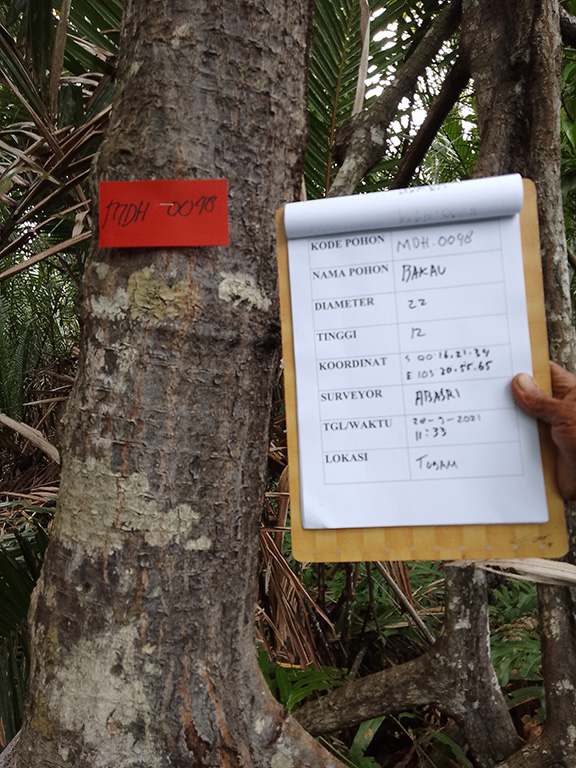 MDH-0098
KODE POHON MDH.0098
NAMA POHON BAKAU
DIAMETER 22
TINGGI 12
KOORDINAT S 00 16.21.34
E 103 20.55.65
SURVEYOR ABASRI
TGL/WAKTU 20-9-2021
11:33
LOKASI